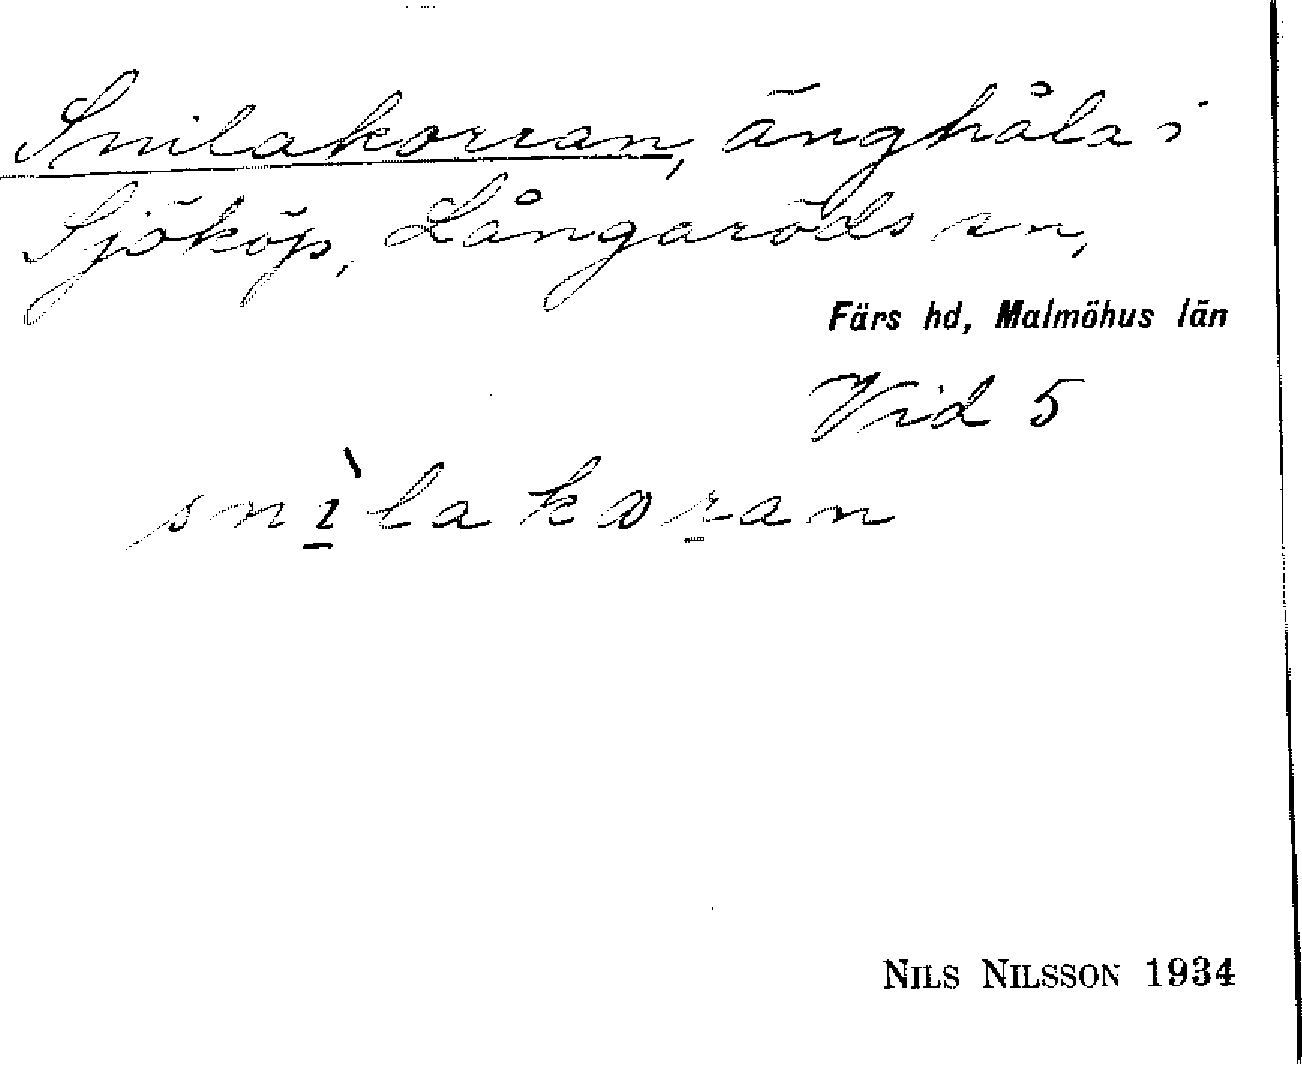 Snilakorran, änghåla i
Sjököp, Långaröds sn,
Färs hd, Malmöhus län
Vid 5
snı̱̀lakơṟan
NILS NILSSON 1934